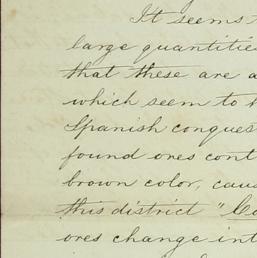 It seems
large quantitie
that these are a
which seem to
Spanish conques
found ores cont
brown color, caus
this district "
ores change int